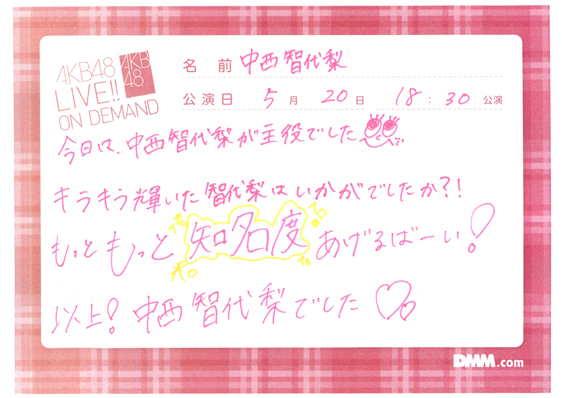 AKB48
LIVE!!
ON DEMAND
AKB
48
名 前 中西智代梨
公演日 5月 20日 18:30 公演
今日は、中西智代梨が主役でした
キラキラ輝いた智代梨はいかがでしたか?!
もっともっと知名度あげるばーい!
以上!中西智代梨でした♡
DMM.com